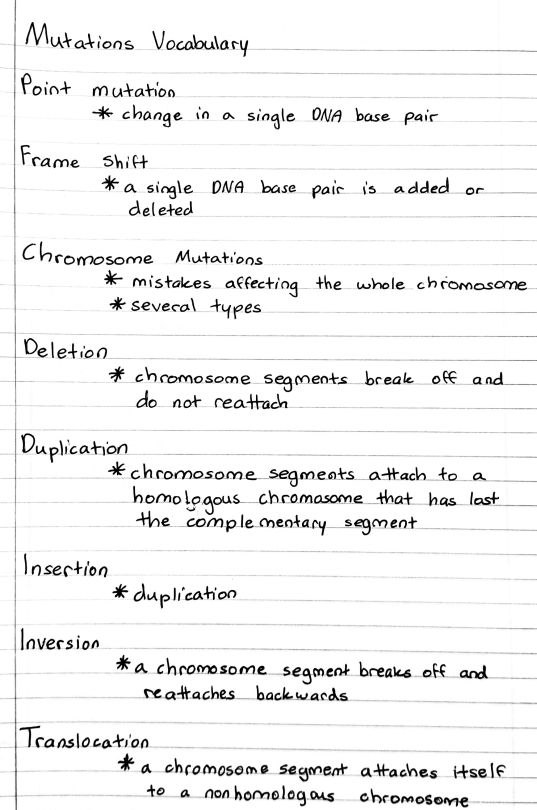 Mutations Vocabulary
Point mutation
* change in a single DNA base pair
Frame Shift
* a single DNA base pair is added or
deleted
Chromosome Mutations
* mistakes affecting the whole chromosome
* several types
Deletion
* chromosome segments break off and
do not reattach
Duplication
* chromosome segments attach to a
homologous chromosome that has lost
the complementary segment
Insertion
* duplication
Inversion
* a chromosome segment breaks off and
reattaches backwards
Translocation
* a chromosome segment attaches itself
to a nonhomologous chromosome